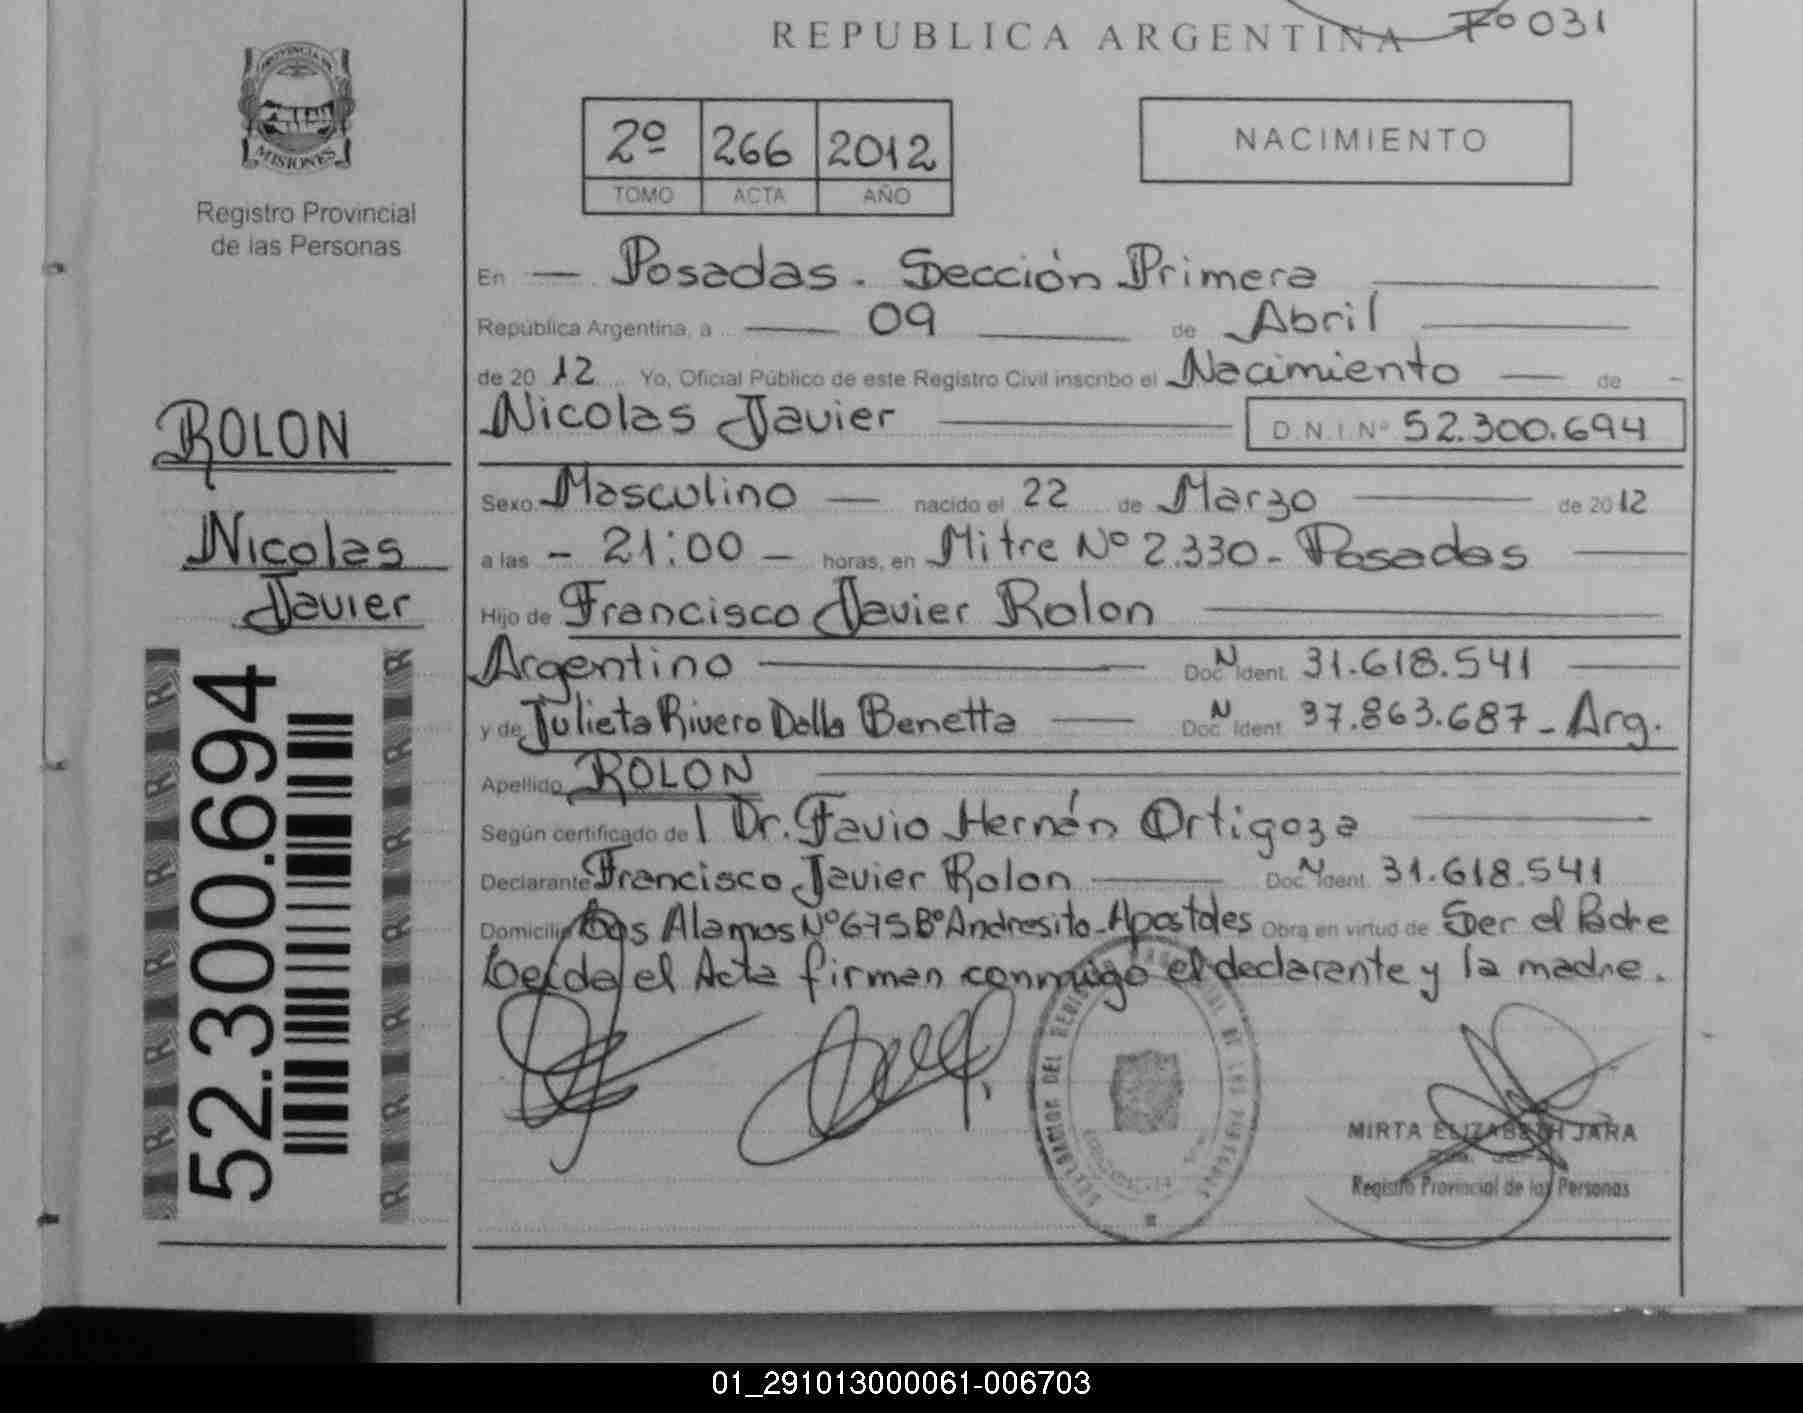 REPUBLICA ARGENTINA
Fº 031
PROVINCIA DE
MISIONES
Registro Provincial
de las Personas
2º 266 2012
TOMO ACTA AÑO
NACIMIENTO
En — Posadas. Sección Primera
República Argentina, a — 09 — de Abril
de 2012 Yo, Oficial Público de este Registro Civil inscribo el Nacimiento — de
Nicolas Javier D.N.I. Nº 52.300.694
ROLON
Nicolas
Javier
Sexo Masculino — nacido el 22 de Marzo — de 2012
a las - 21:00 - horas, en Mitre Nº 2.330 - Posadas
Hijo de Francisco Javier Rolon
Argentino — Doc. N Ident. 31.618.541
y de Julieta Rivero Dalla Benetta — Doc. N Ident. 37.863.687 - Arg.
Apellido ROLON
Según certificado del Dr. Favio Hernán Ortigoza
Declarante Francisco Javier Rolon — Doc. N Ident. 31.618.541
Domicilio Los Alamos Nº 675 Bº Andresito - Apostoles Obra en virtud de Ser el Padre
Leída el Acta firman conmigo el declarante y la madre.
52.300.694
R R R R R R
MIRTA ELIZABETH JARA
Registro Provincial de las Personas
01_291013000061-006703